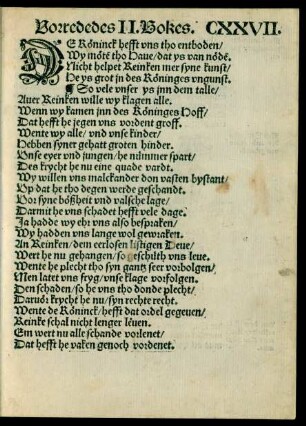 Vorrededes II. Bokes. CXXVII.
DE Röninck hefft vns tho entboden/
Wy mötẽ tho Haue/ dat ys van nödẽ.
Nicht helpet Reinken mer syne kunst/
He ys grot jn des Röninges vngunst.
¶ So vele vnser ys jnn dem talle/
Auer Reinken wille wy klagen alle.
Wenn wy kamen jnn des Röninges Hoff/
Dat hefft he jegen vns vordent groff.
Wente wy alle/ vnd vnse kinder/
Hebben syner gehatt groten hinder.
Vnse eyer vnd jungen/ he nümmer spart/
Des krycht he nu eine quade vardt.
Wy willen vns malckander don vasten bystant/
Vp dat he tho degen werde geschandt.
Vor syne bößheit vnd valsche lage/
Darmit he vns schadet hefft vele dage.
Ja hadde wy ehr vns also bespraken/
Wy hadden vns lange wol gewraken.
An Reinken/ dem eerlosen listigen Deue/
Wert he nu gehangen/ so geschüth vns leue.
Wente he plecht tho syn gantz seer vorbolgen/
Men latet vns fryg/ vnse klage vorfolgen.
Den schaden/ so he vns tho donde plecht/
Daruör krycht he nu/ syn rechte recht.
Wente de Röninck/ hefft dat ordel gegeuen/
Reinke schal nicht lenger leuen.
Em wert nu alle schande vorlenet/
Dat hefft he vaken genoch vordenet.